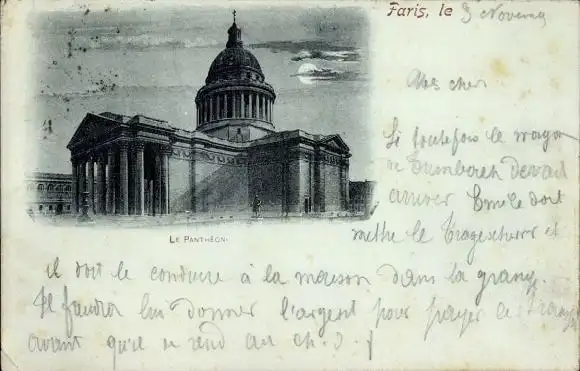 Paris, le 3 Novemb
Mes cher
Si toutefois le wagon
de devait
arriver Emile doit
mettre le et
LE PANTHÉON
il doit le conduire à la maison dans la grange
Il faudra lui donner l'argent pour payer le
avant qu'il se rend au ch. d. f